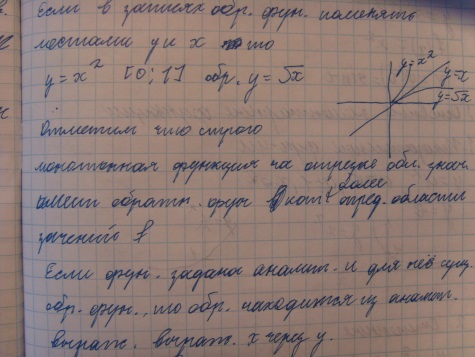 Если в записях обр. фун. поменять
местами y и x то
y = x² [0; 1] обр. y = √x
y = x²
y = x
y = √x
Отметим что строго
монотонная функция на отрезке обл. знач.
имеет обратн. фун более
опред. области
значений f
Если фун. задана аналит. и для неё сущ.
обр. фун., то обр. находится из аналит.
выраж. выраж. x через y.